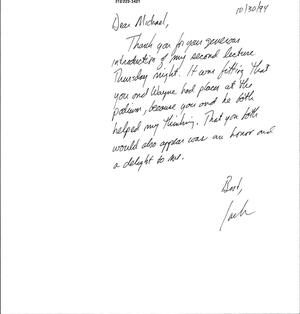 10/30/94
Dear Michael,
Thank you for your generous
introduction of my second lecture
Thursday night. It was fitting that
you and Wayne had places at the
podium, because you and he both
helped my thinking. That you both
would also appear was an honor and
a delight to me.
Best,
Jack